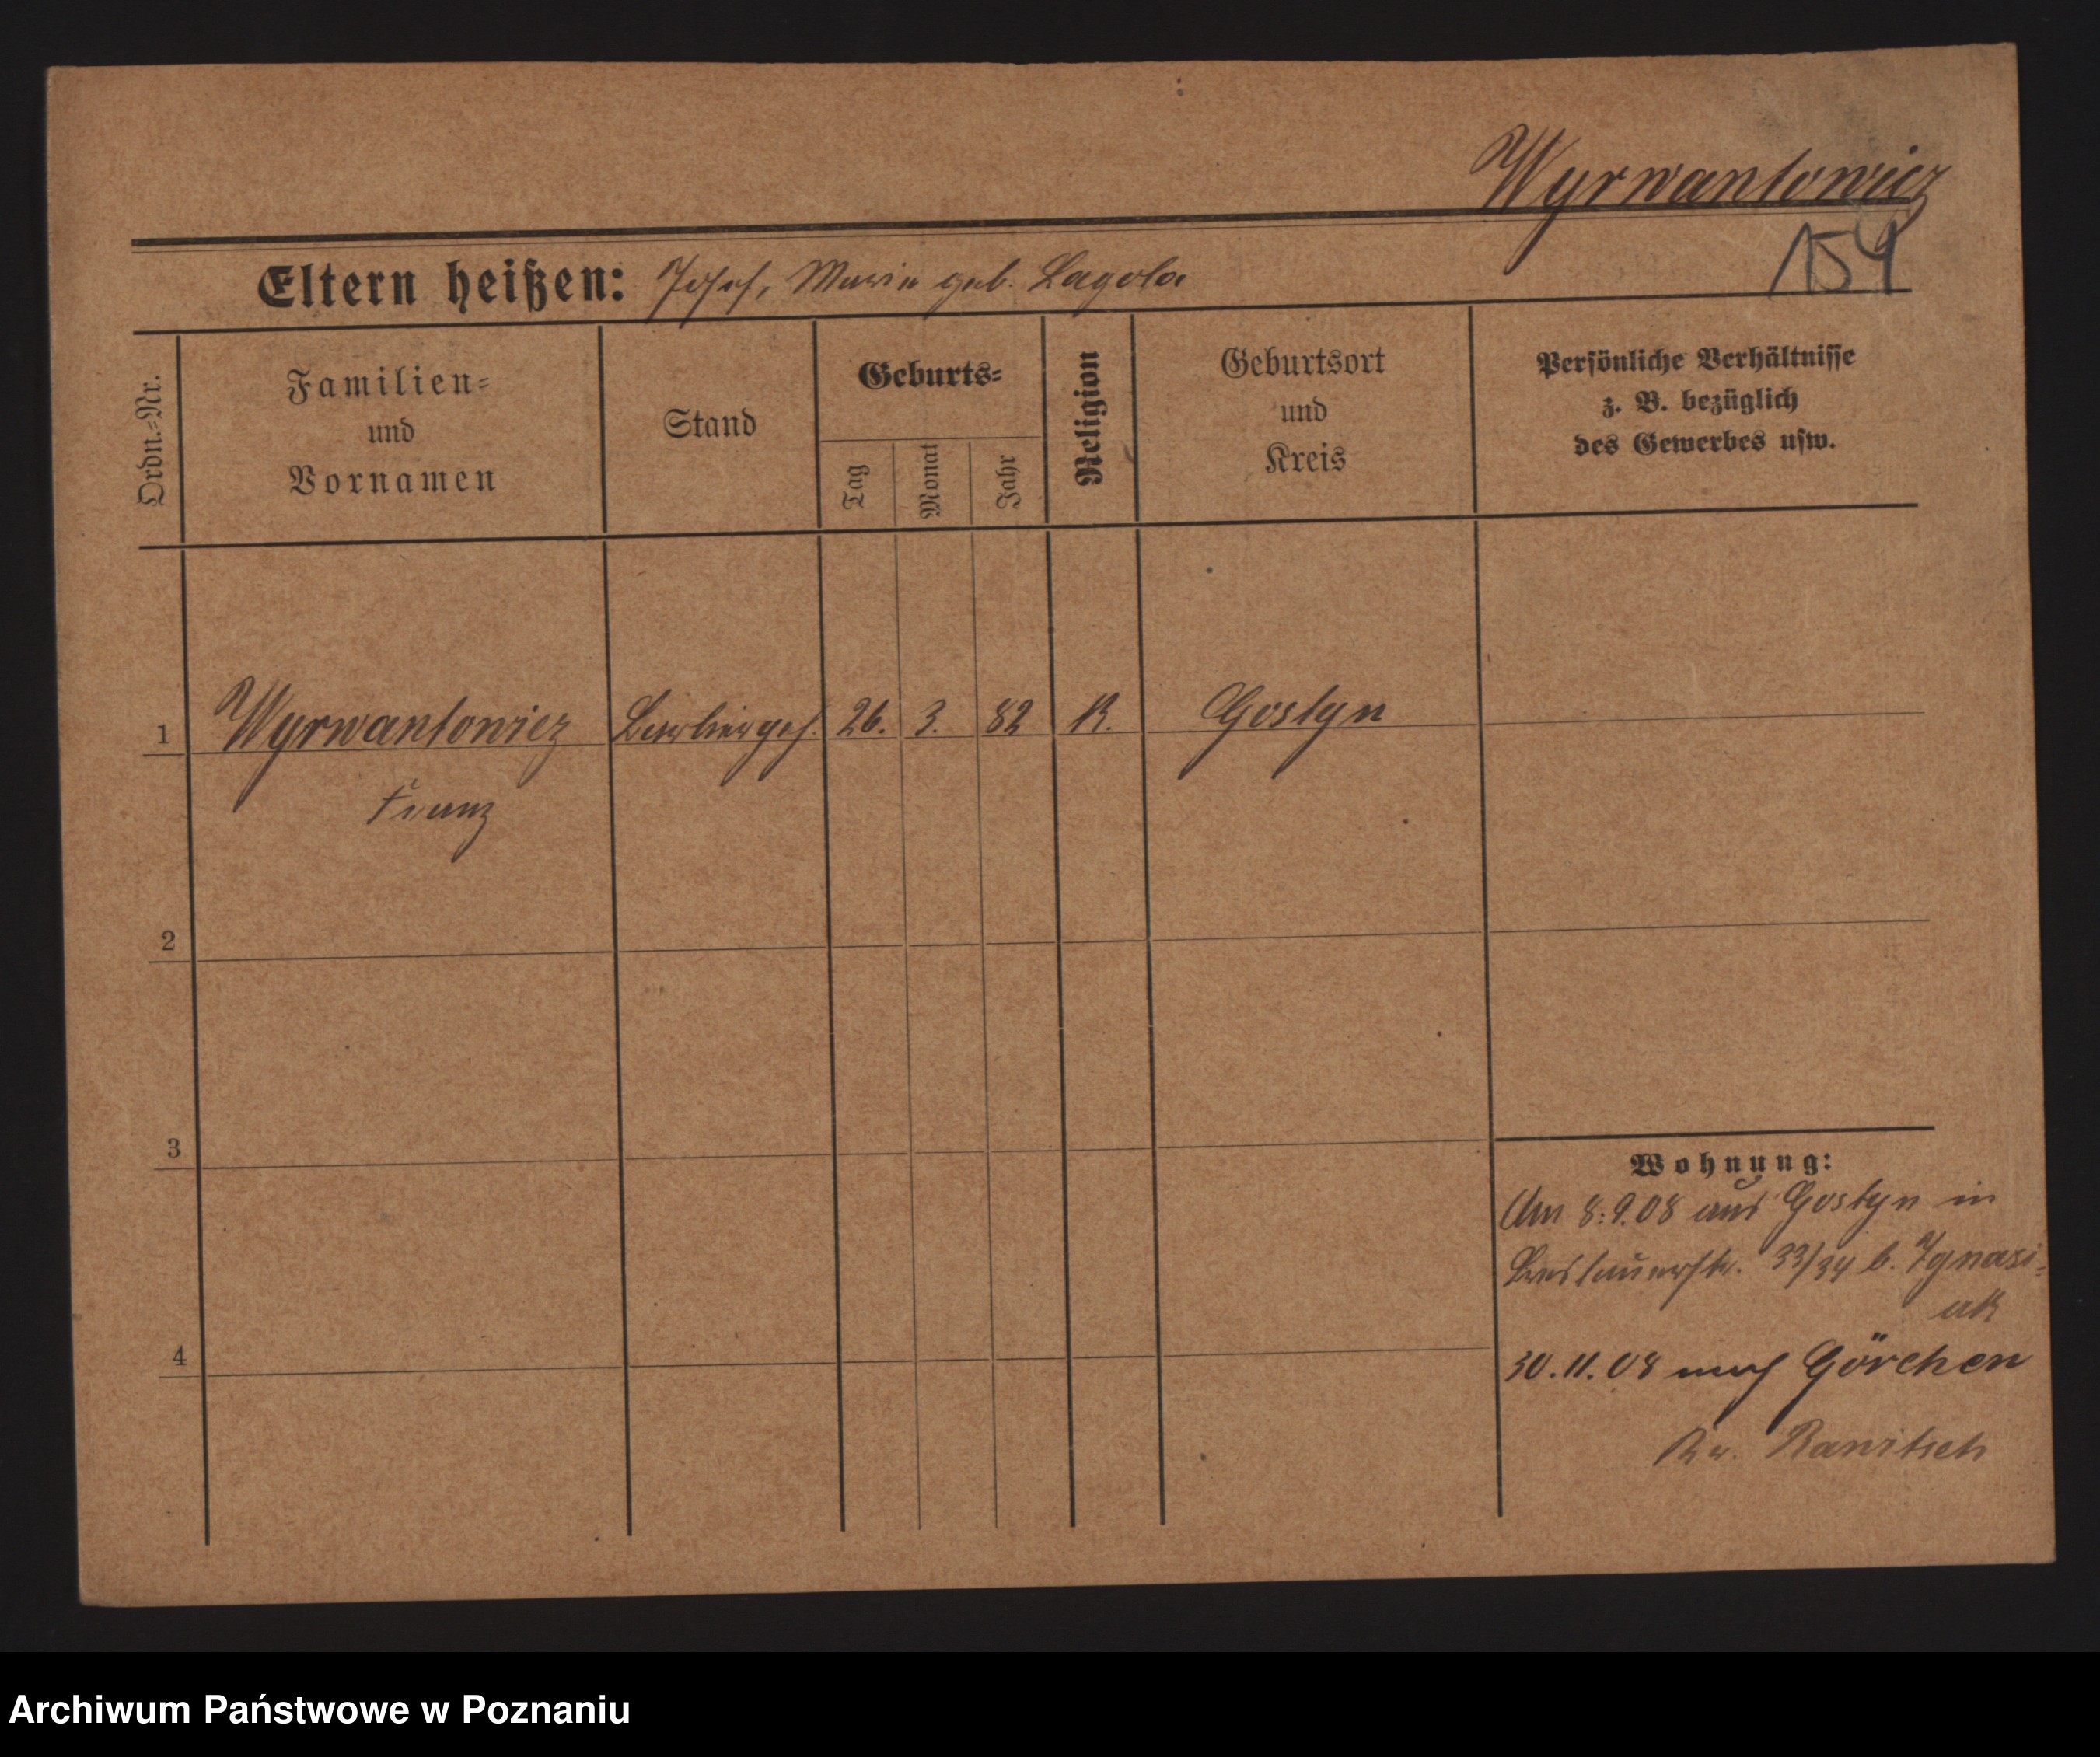 Wyrwantowicz
154
Eltern heißen: Josef, Marie geb. Lagola
Ordn.=Nr.
Familien=
und
Vornamen
Stand
Geburts=
Tag
Monat
Jahr
Religion
Geburtsort
und
Kreis
Persönliche Verhältnisse
z. B. bezüglich
des Gewerbes usw.
1 Wyrwantowicz Barbiergeh. 26. 3. 82 K. Gostyn
Franz
2
3
4
Wohnung:
Am 8.9.08 aus Gostyn in
Breslauerstr. 33/34 b. Ignasi=
ak
30.11.08 nach Görchen
Kr. Rawitsch
Archiwum Państwowe w Poznaniu